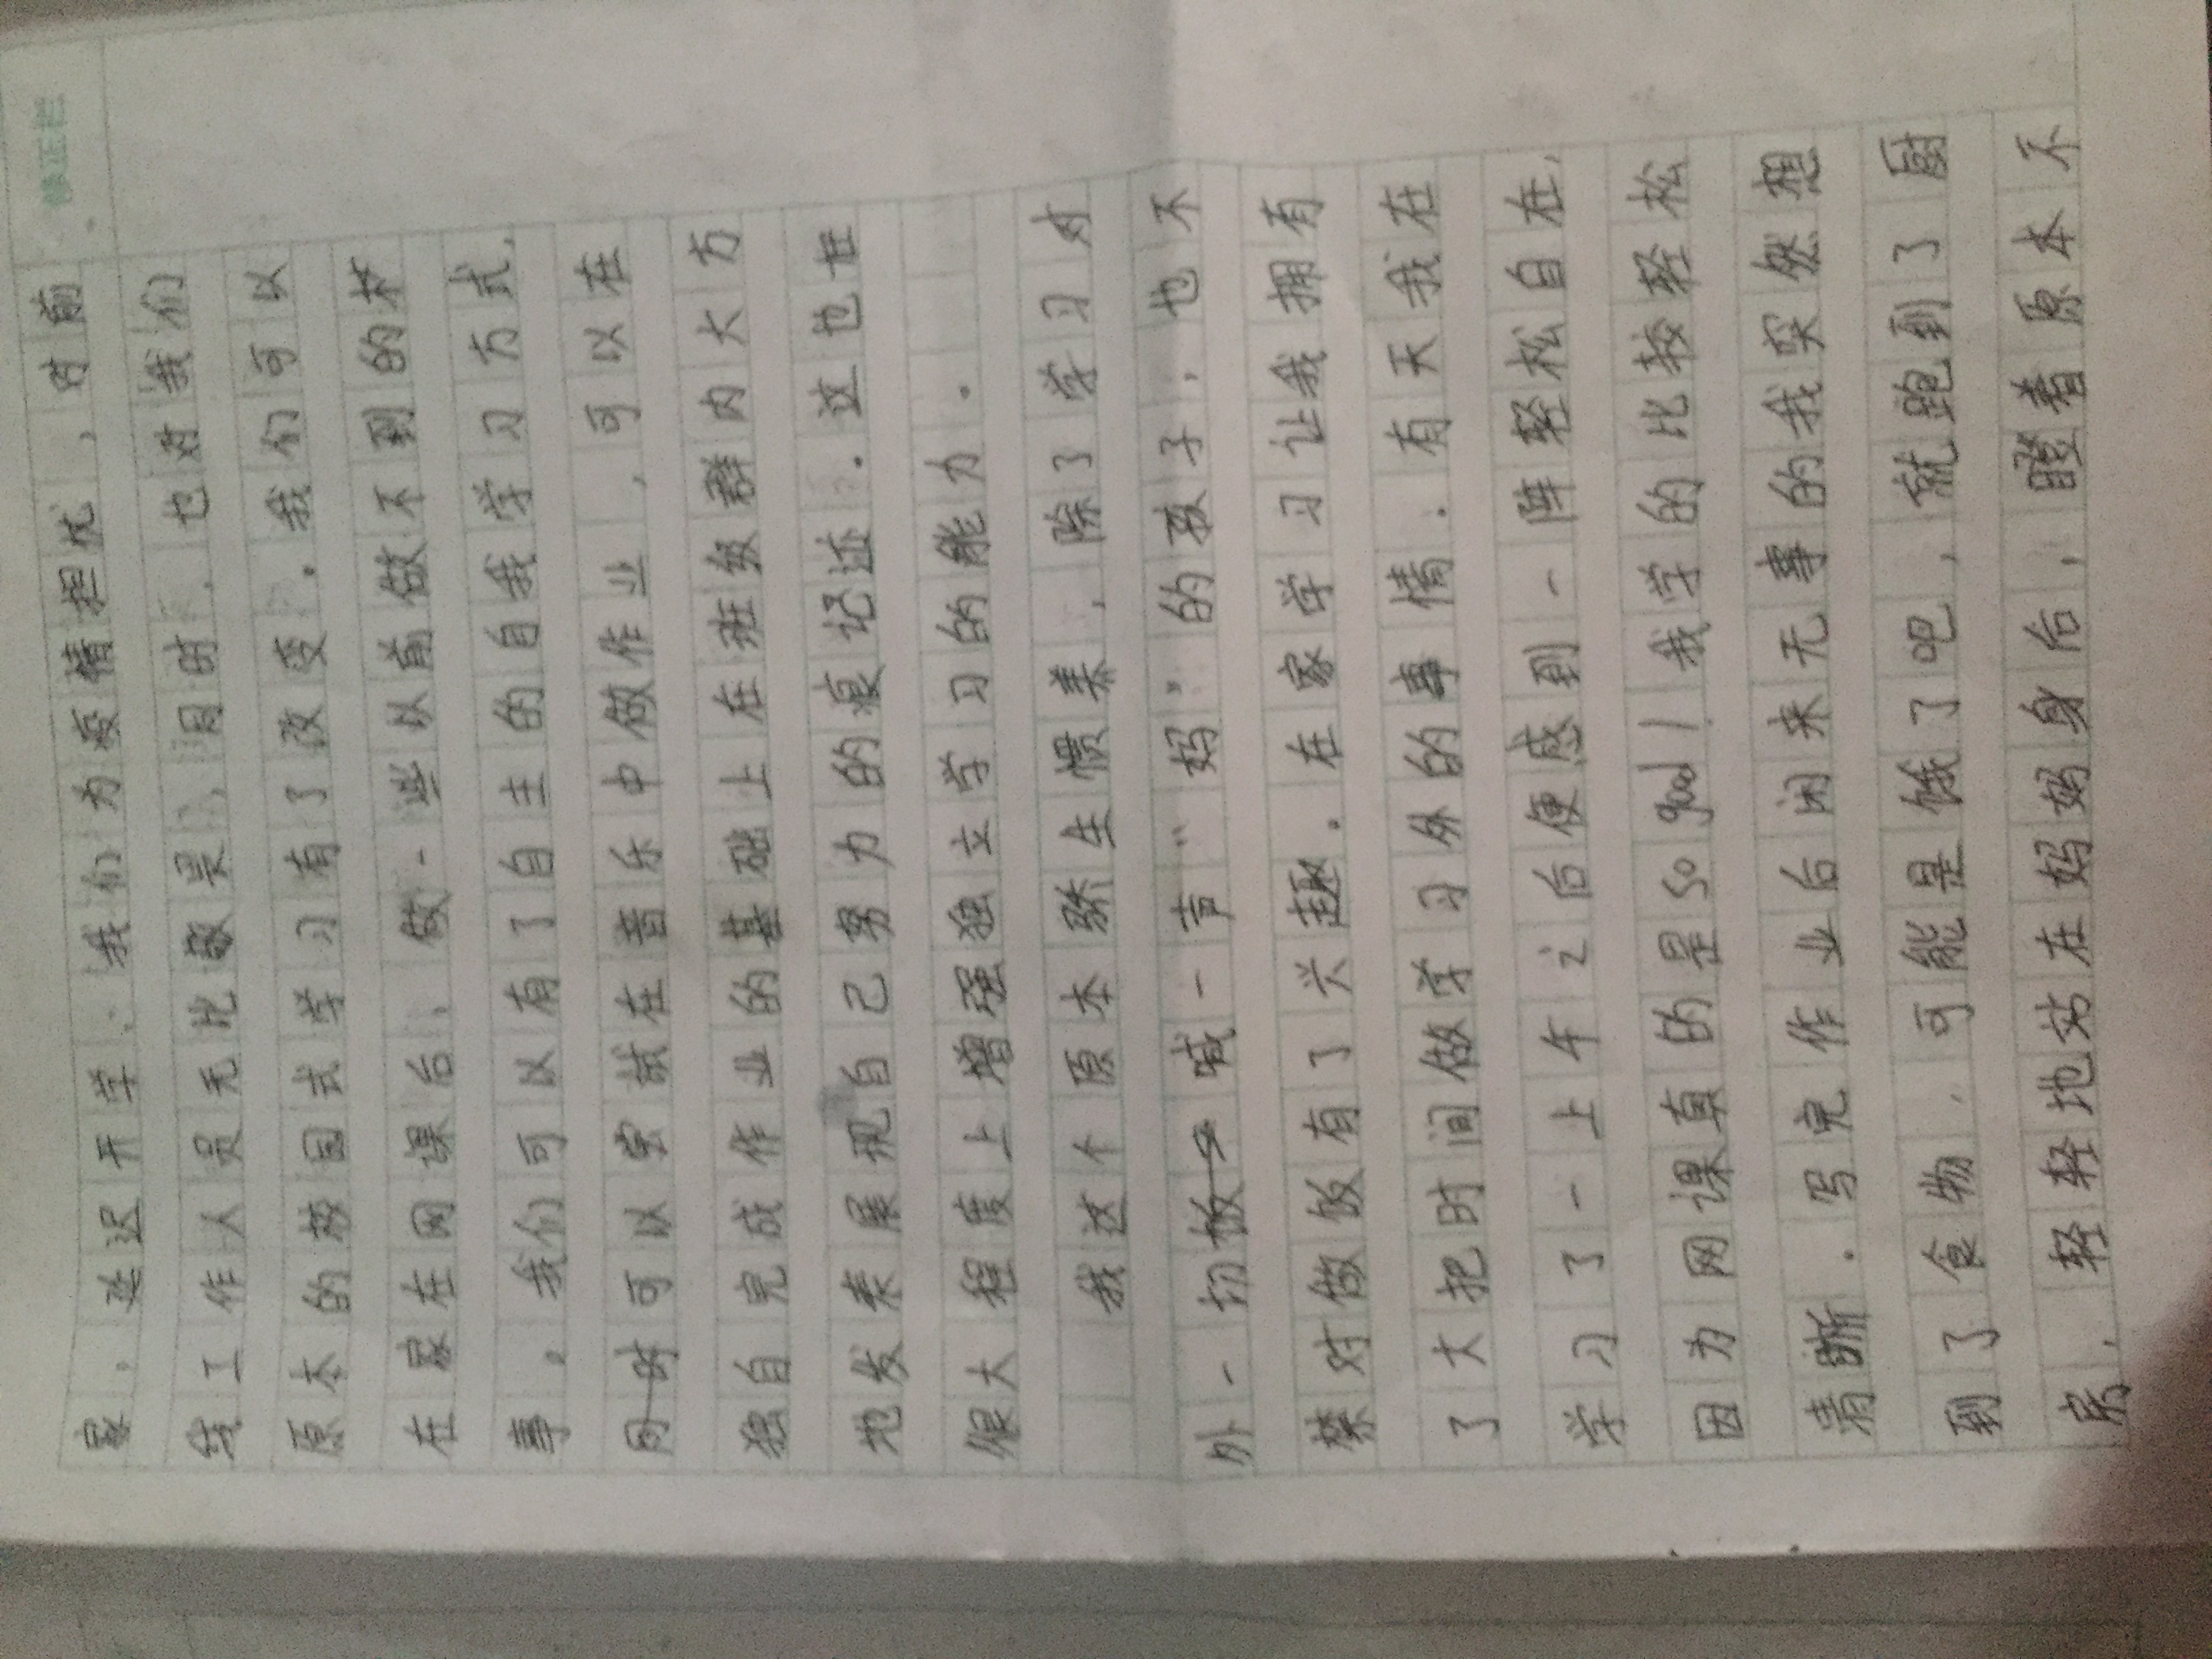 修正栏
家，延迟开学，我们为疫情担忧，对前
线工作人员无比敬畏，同时，也对我们
原本的校园式学习有了改变。我们可以
在家在网课后，做一些以前做不到的
事。我们可以有了自主的自我学习方式，
可以尝试在音乐中做作业，可以在
独自完成作业的基础上在班级群内大方
地发表展现自己努力的痕记迹。这也
很大程度上增强独立学习的能力。
我这个原本娇生惯养，除了学习对
外一切喊一声“妈”的孩子，也不
禁对做饭有了兴趣。在家学习让我拥有
了大把时间做学习外的事情。有天我在
学习了一上午之后便感到一阵轻松自在，
因为网课真的是so good！我学的比较轻松
清晰。写完作业后闲来无事的我突然想
到了食物，可能是饿了吧，就跑到了厨
房，轻轻地站在妈妈身后，瞪着原本不